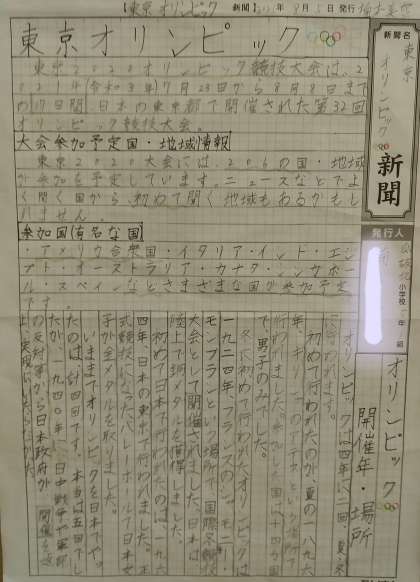 【東京オリンピック 新聞】
東京オリンピック
新聞名
東京
オリンピック
新聞
発行人
小学校 年 組
東京2020オリンピック競技大会は、2
021年(令和3年)7月23日から8月8日まで
の17日間、日本の東京都で開催された第32回
オリンピック競技大会。
大会参加予定国・地域情報
東京2020大会には、206の国・地域
が参加を予定しています。ニュースなどでよ
く聞く国から、初めて聞く地域もあるかもし
れません。
参加国(有名な国)
・アメリカ合衆国・イタリア・インド・エジ
プト・オーストラリア・カナダ・シンガポー
ル・スペインなどさまざまな国が参加予定
です
開催年・場所
オリンピックは四年に一回、夏、冬
に行われます。
初めて行われたのが、夏の一八九六
年、ギリシャ
行われました。
で、男子のみでした。
冬に初めて行われたオリンピックは
一九二四年、フランスのシャモニー・
モンブランという場所で、国際冬季競技
大会として開催されました。日本は
陸上で銅メダルを獲得しました。
初めて日本で行われたのは、一九六
四年、日本の東京で行われました。正
式競技となったバレーボールで日本女
子が金メダルを取りました。
いままでオリンピックを日本でや
たのは、計四回です。本当は五回でし
たが、一九四〇年に、日中戦争や軍部
の反対等から日本政府が、開催を返
上